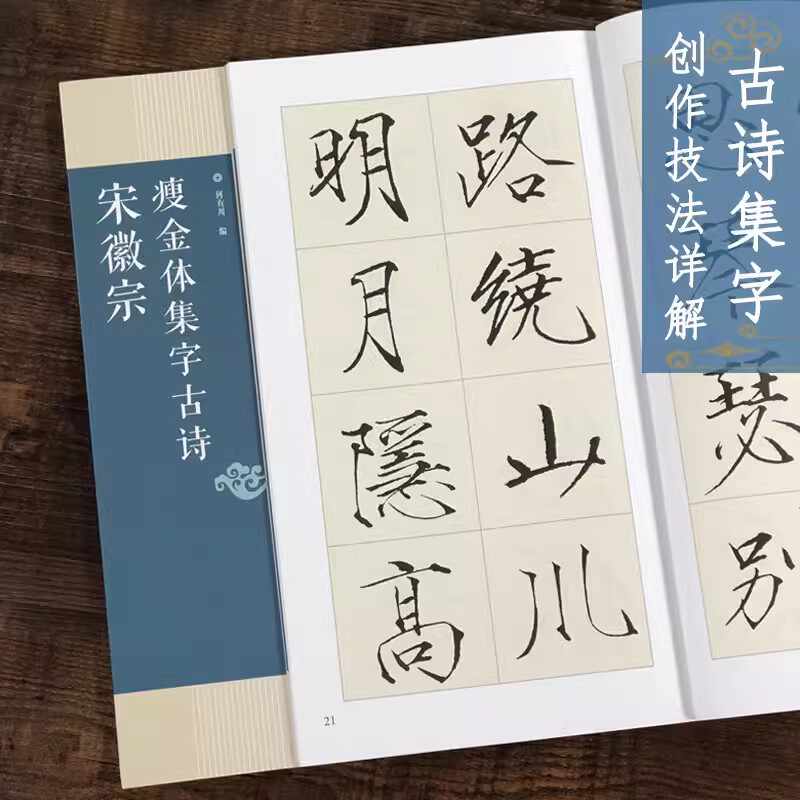 古诗集字
创作技法详解
宋徽宗
瘦金体集字古诗
编
瑟别
路繞山川
明月隱高
21